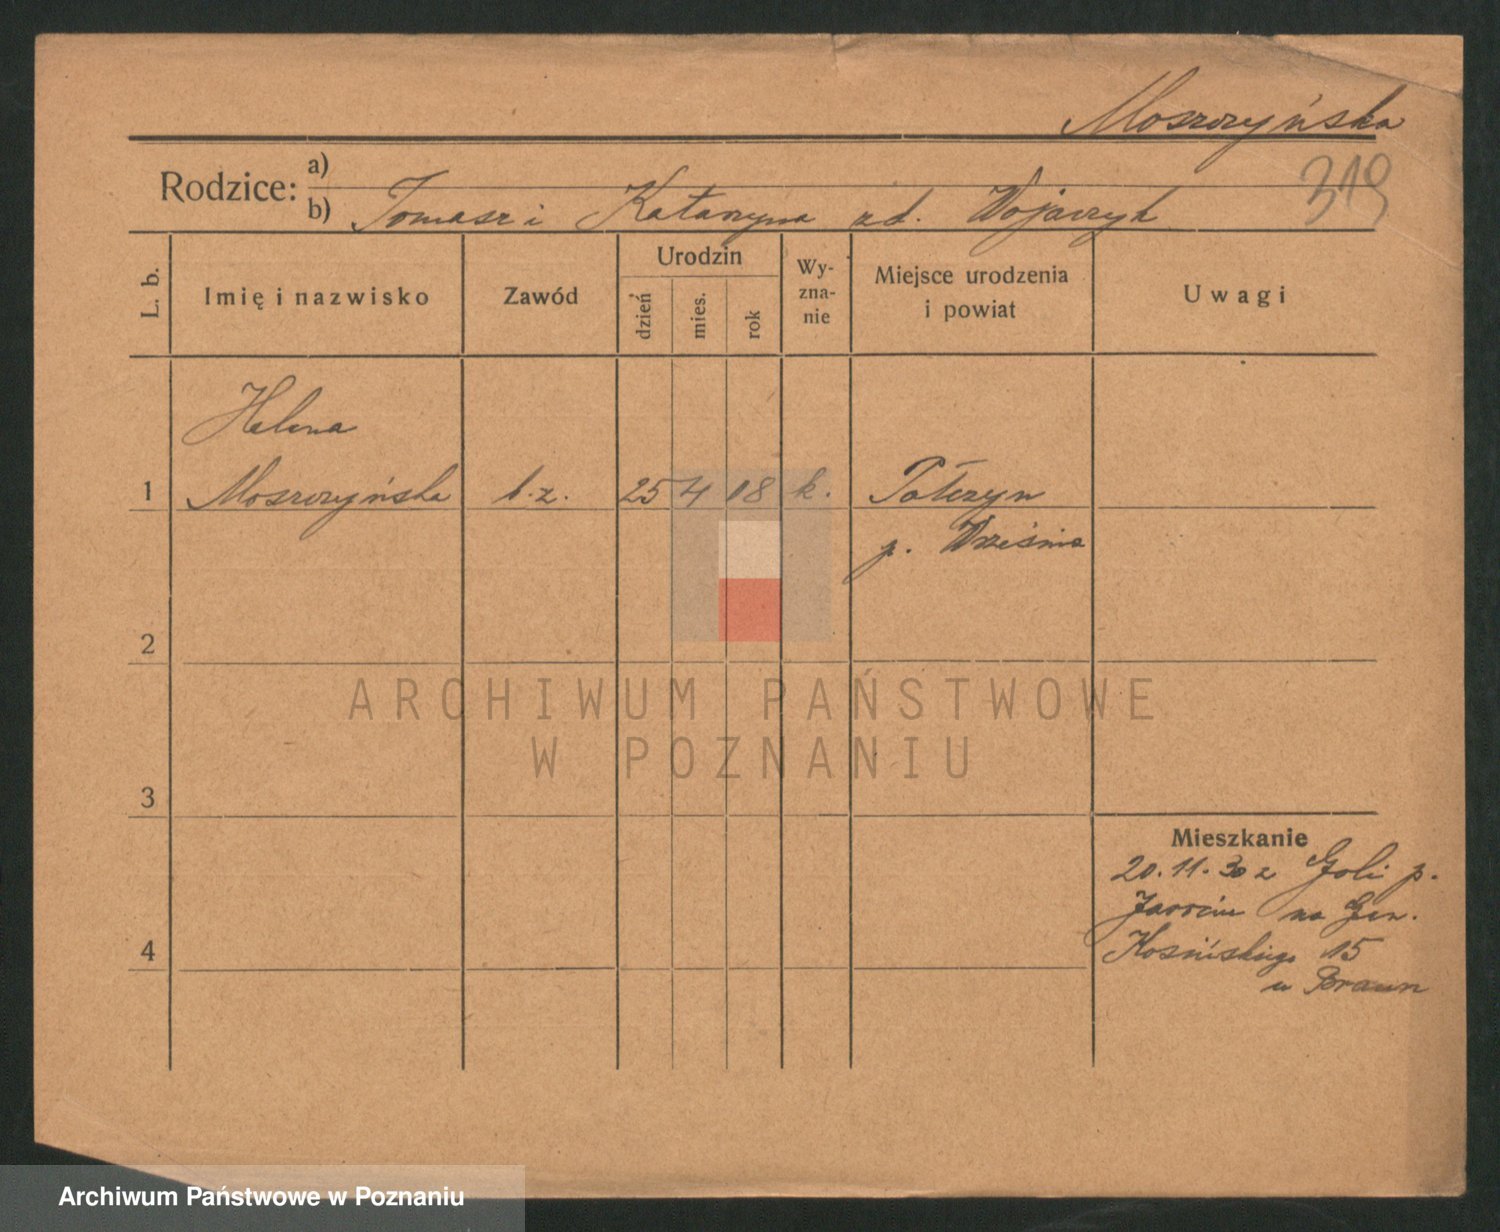 Moszczyńska
319
Rodzice: a)
b) Tomasz i Katarzyna zd. Wojarzyk
L. b.
Imię i nazwisko
Zawód
Urodzin
dzień
mies.
rok
Wy-
zna-
nie
Miejsce urodzenia
i powiat
Uwagi
Helena
1 Moszczyńska b. z. 25 4 18 k. Pałczyn
p. Września
2
3
4
Mieszkanie
20. 11. 30 z Goli p.
Jarocin na Gen.
Kosińskiego 15
u Braun
ARCHIWUM PAŃSTWOWE
W POZNANIU
Archiwum Państwowe w Poznaniu